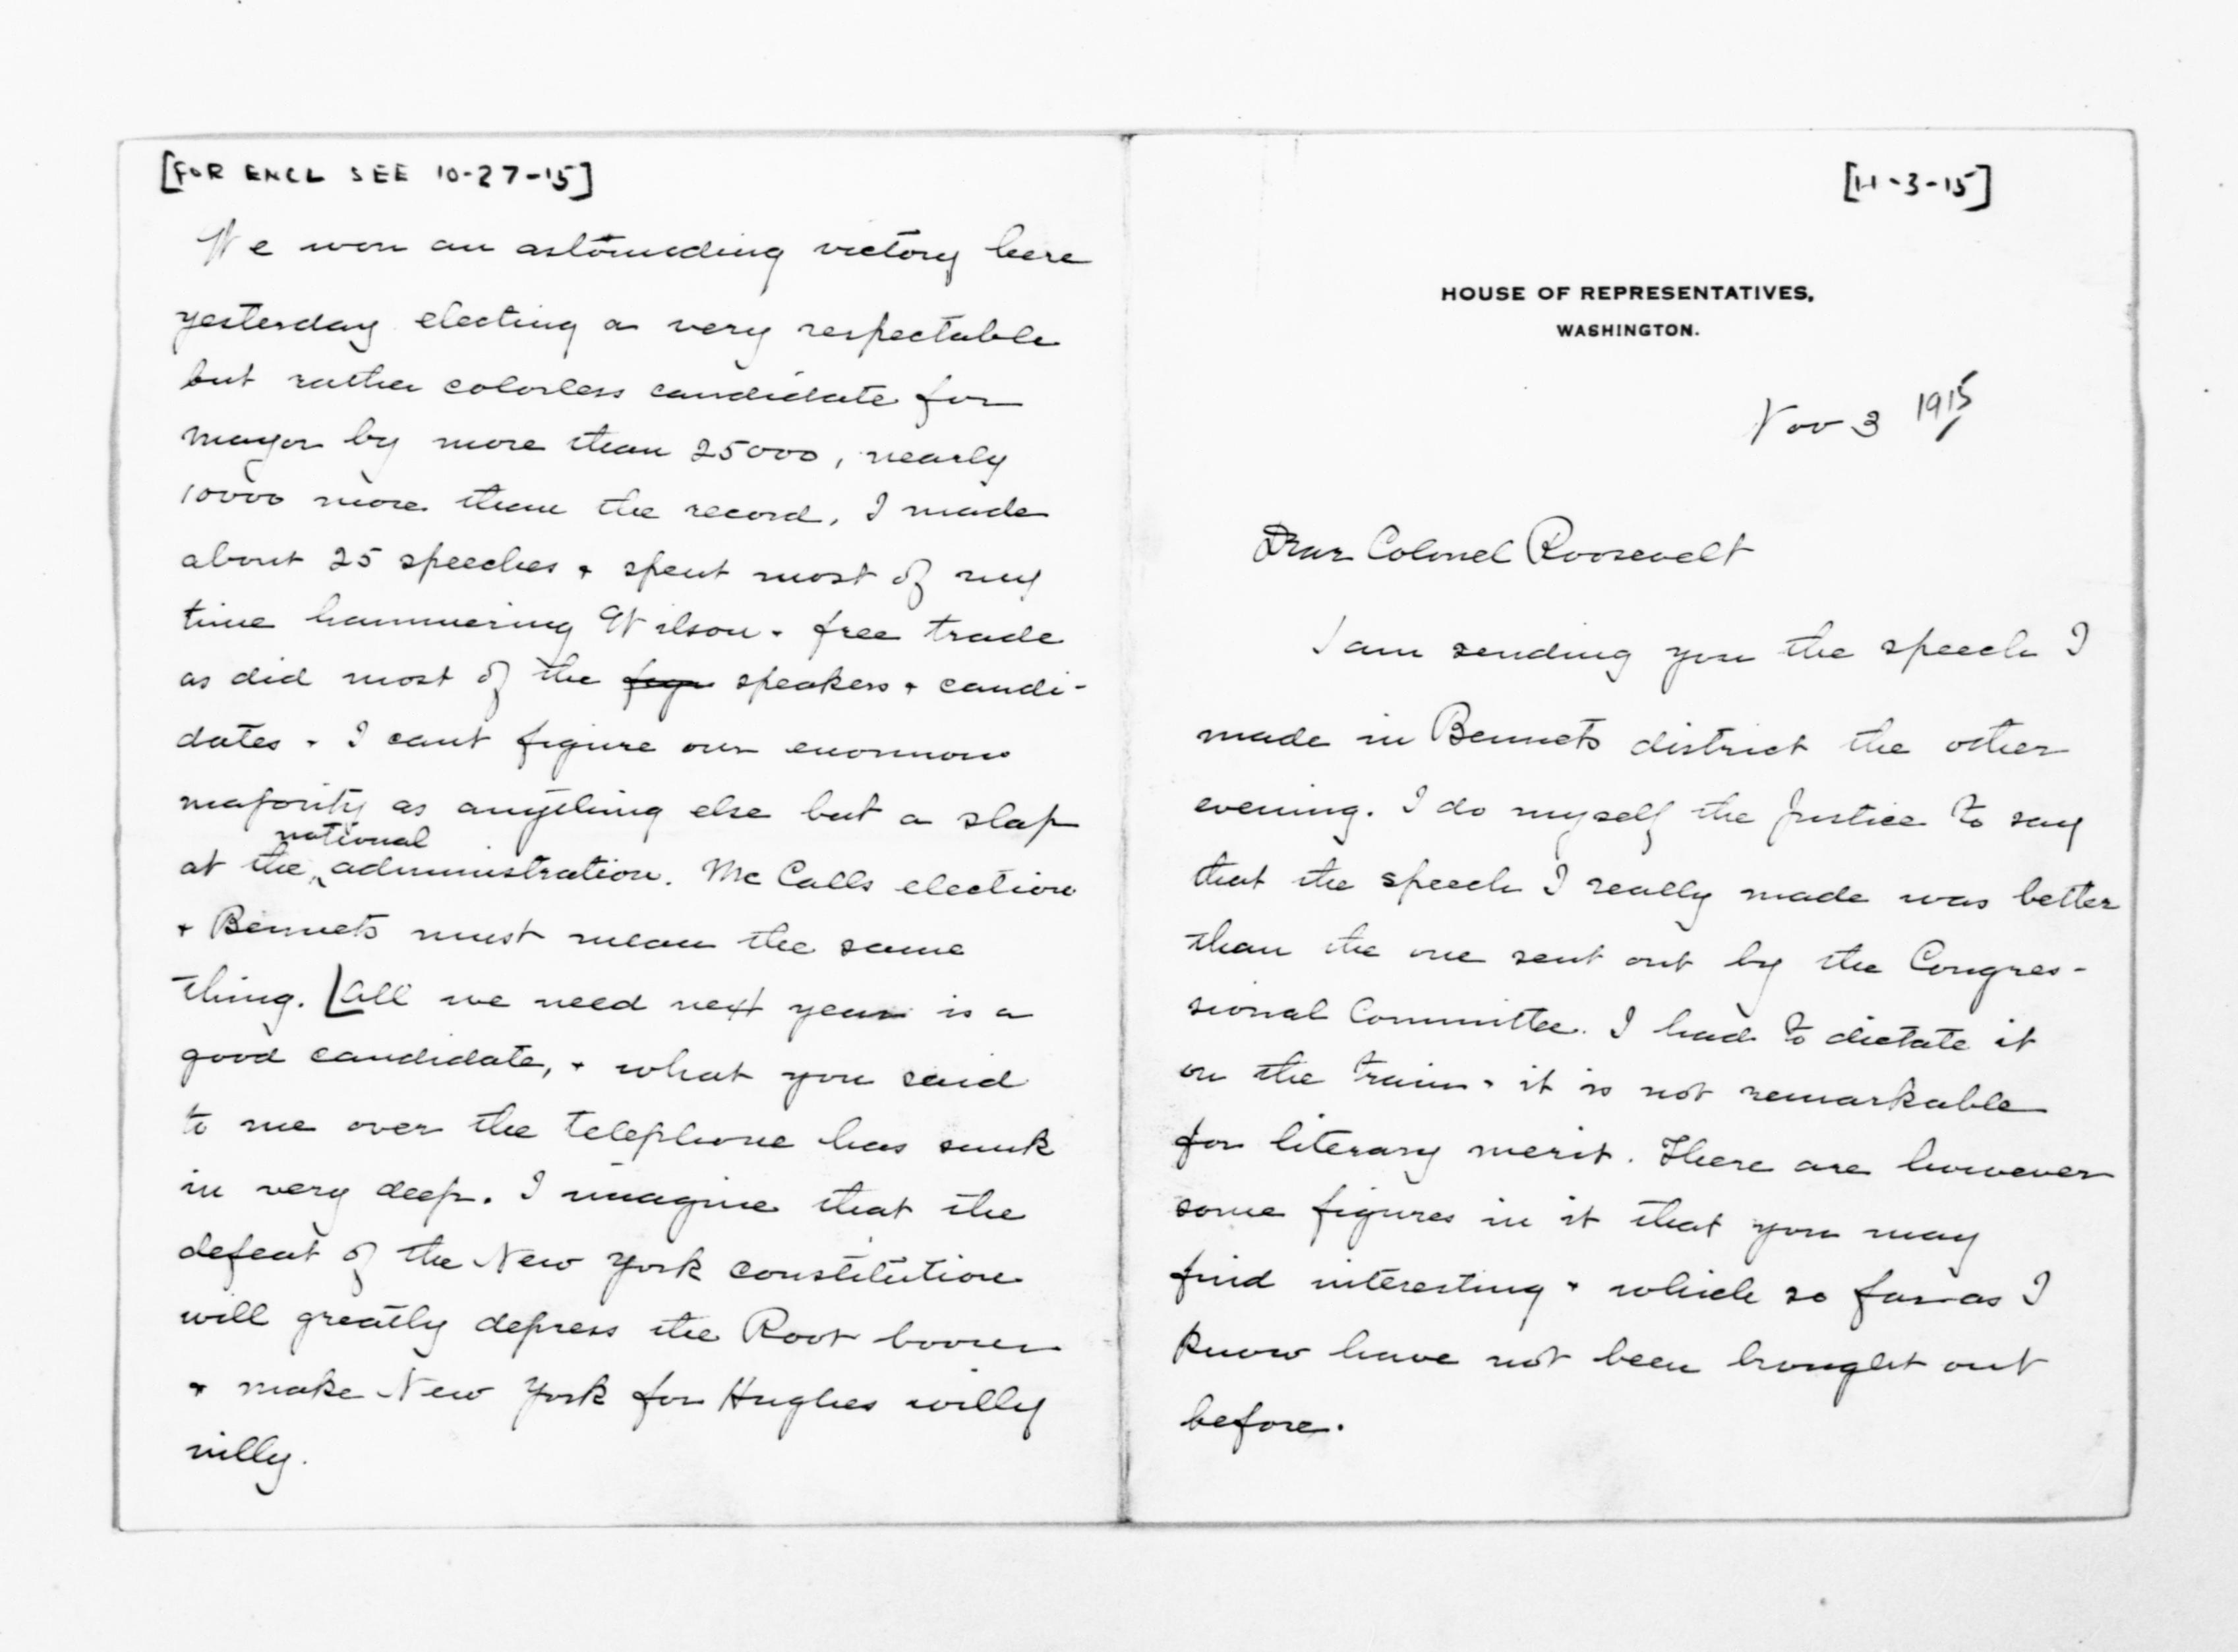 [11-3-15]
HOUSE OF REPRESENTATIVES,
WASHINGTON.
Nov 3 1915
Dear Colonel Roosevelt
I am sending you the speech I
made in Bennets district the other
evening. I do myself the justice to say
that the speech I really made was better
than the one sent out by the Congres-
sional Committee. I had to dictate it
on the train & it is not remarkable
for literary merit. There are however
some figures in it that you may
find interesting & which so far as I
know have not been brought out
before.
[FOR ENCL SEE 10-27-15]
We won an astounding victory here
yesterday electing a very respectable
but rather colorless candidate for
mayor by more than 25000, nearly
10000 more than the record. I made
about 25 speeches & spent most of my
time hammering Wilson & free trade
as did most of the speakers & candi-
dates & I cant figure our enormous
majority as anything else but a slap
at the national administration. McCalls election
& Bennets must mean the same
thing. [All we need next year is a
good candidate, & what you said
to me over the telephone has sunk
in very deep. I imagine that the
defeat of the New York constitution
will greatly depress the Root boom
& make New York for Hughes willy
nilly.